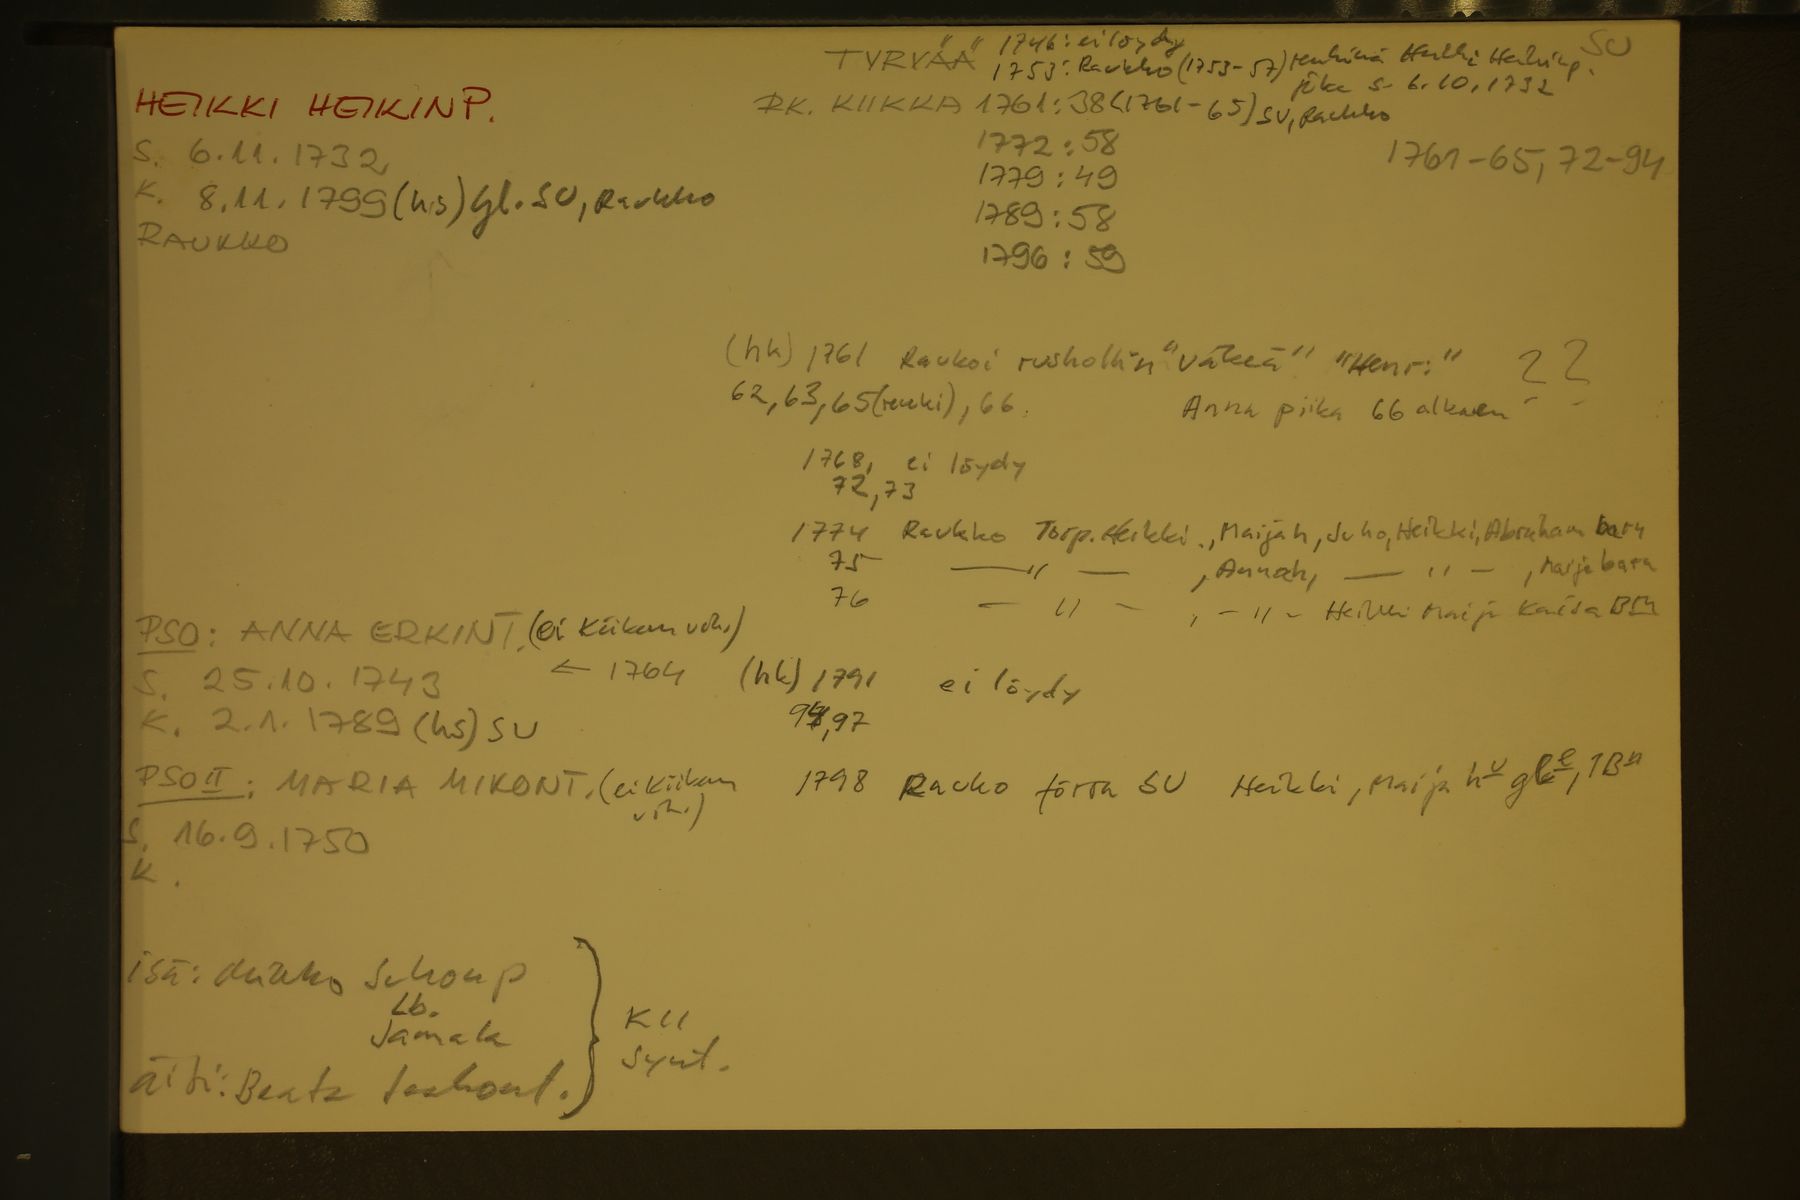 SU
TYRVÄÄ 1746: ei löydy
1753: Raukko (1753-57) renkinä Heikki Heikinp.
joka s. 6.10.1732
HEIKKI HEIKINP.
RK. KIIKKA 1761:38 (1761-65) SU, Raukko
S. 6.11.1732
1772:58
1761-65, 72-94
1779:49
K. 8.11.1799 (hs) Gl. SU, Raukko
1789:58
RAUKKO
1796:59
(hk) 1761 Raukoi rushollin "väkeä" "Henr:" ??
62, 63, 65 (renki), 66. Anna piika 66 alkaen
1768, ei löydy
72, 73
1774 Raukko Torp. Heikki, Maija h, Juho, Heikki, Abraham barn
75 —"— , Anna h, —"— , Maija barn
76 —"— , —"— Heikki Maija Kaisa
PSO: ANNA ERKINT. (ei Kiikan vih.)
S. 25.10.1743 ← 1764
(hk) 1791 ei löydy
97
K. 2.1.1789 (hs) SU
PSO II: MARIA MIKONT. (ei Kiikan
vih.)
1798 Rauko torpa SU Heikki, Maija
S. 16.9.1750
K.
isä: Juhonp
Lb.
Jamala
äiti: Beata
KII
synt.